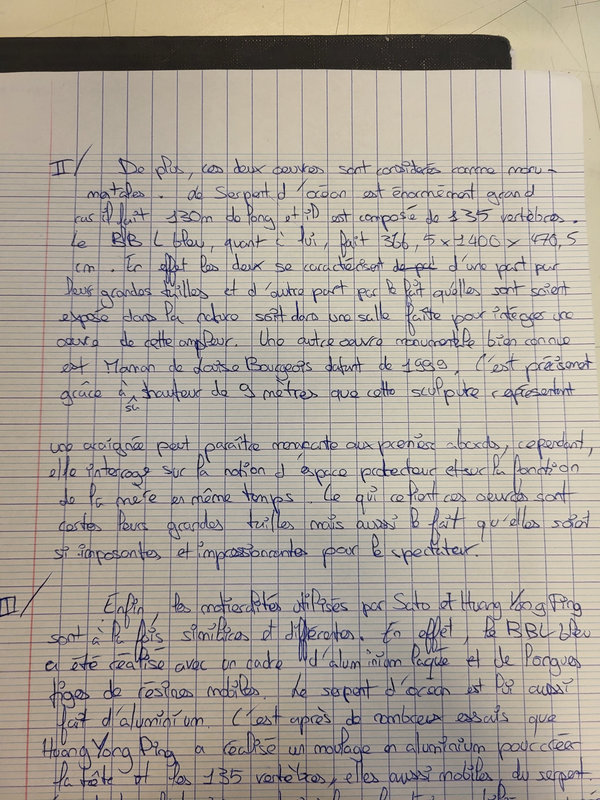 II/ De plus, ces deux oeuvres sont considérés comme monu-
mentales. Le Serpent d'océan est énormément grand
car il fait 130m de long et il est composé de 135 vertèbres.
Le BBL bleu, quant à lui, fait 366,5 x 1400 x 476,5
cm. En effet les deux se caractérisent d'une part par
leurs grandes tailles et d'autre part par le fait qu'elles sont soient
exposé dans la nature soit dans une salle faite pour intégrer une
oeuvre de cette ampleur. Une autre oeuvre monumentale bien connue
est Maman de Louise Bourgeois datant de 1999. C'est précisément
grâce à sa hauteur de 9 mètres que cette sculpture représentant
une araignée peut paraître menaçante aux premiers abords, cependant,
elle interroge sur la notion d'espace protecteur et sur la fonction
de la mère en même temps. Ce qui ces oeuvres sont
certes leurs grandes tailles mais aussi le fait qu'elles soient
si imposantes et impressionnantes pour le spectateur.
II/ Enfin, les matérialités utilisés par Soto et Huang Yong Ping
sont à la fois similaires et différentes. En effet, le BBL bleu
a été réalisé avec un cadre d'aluminium laqué et de longues
tiges de résines mobiles. Le serpent d'océan est lui aussi
fait d'aluminium. C'est après de nombreux essais que
Huang Yong Ping a réalisé un moulage en aluminium pour créer
la tête et les 135 vertèbres, elles aussi mobiles, du serpent.